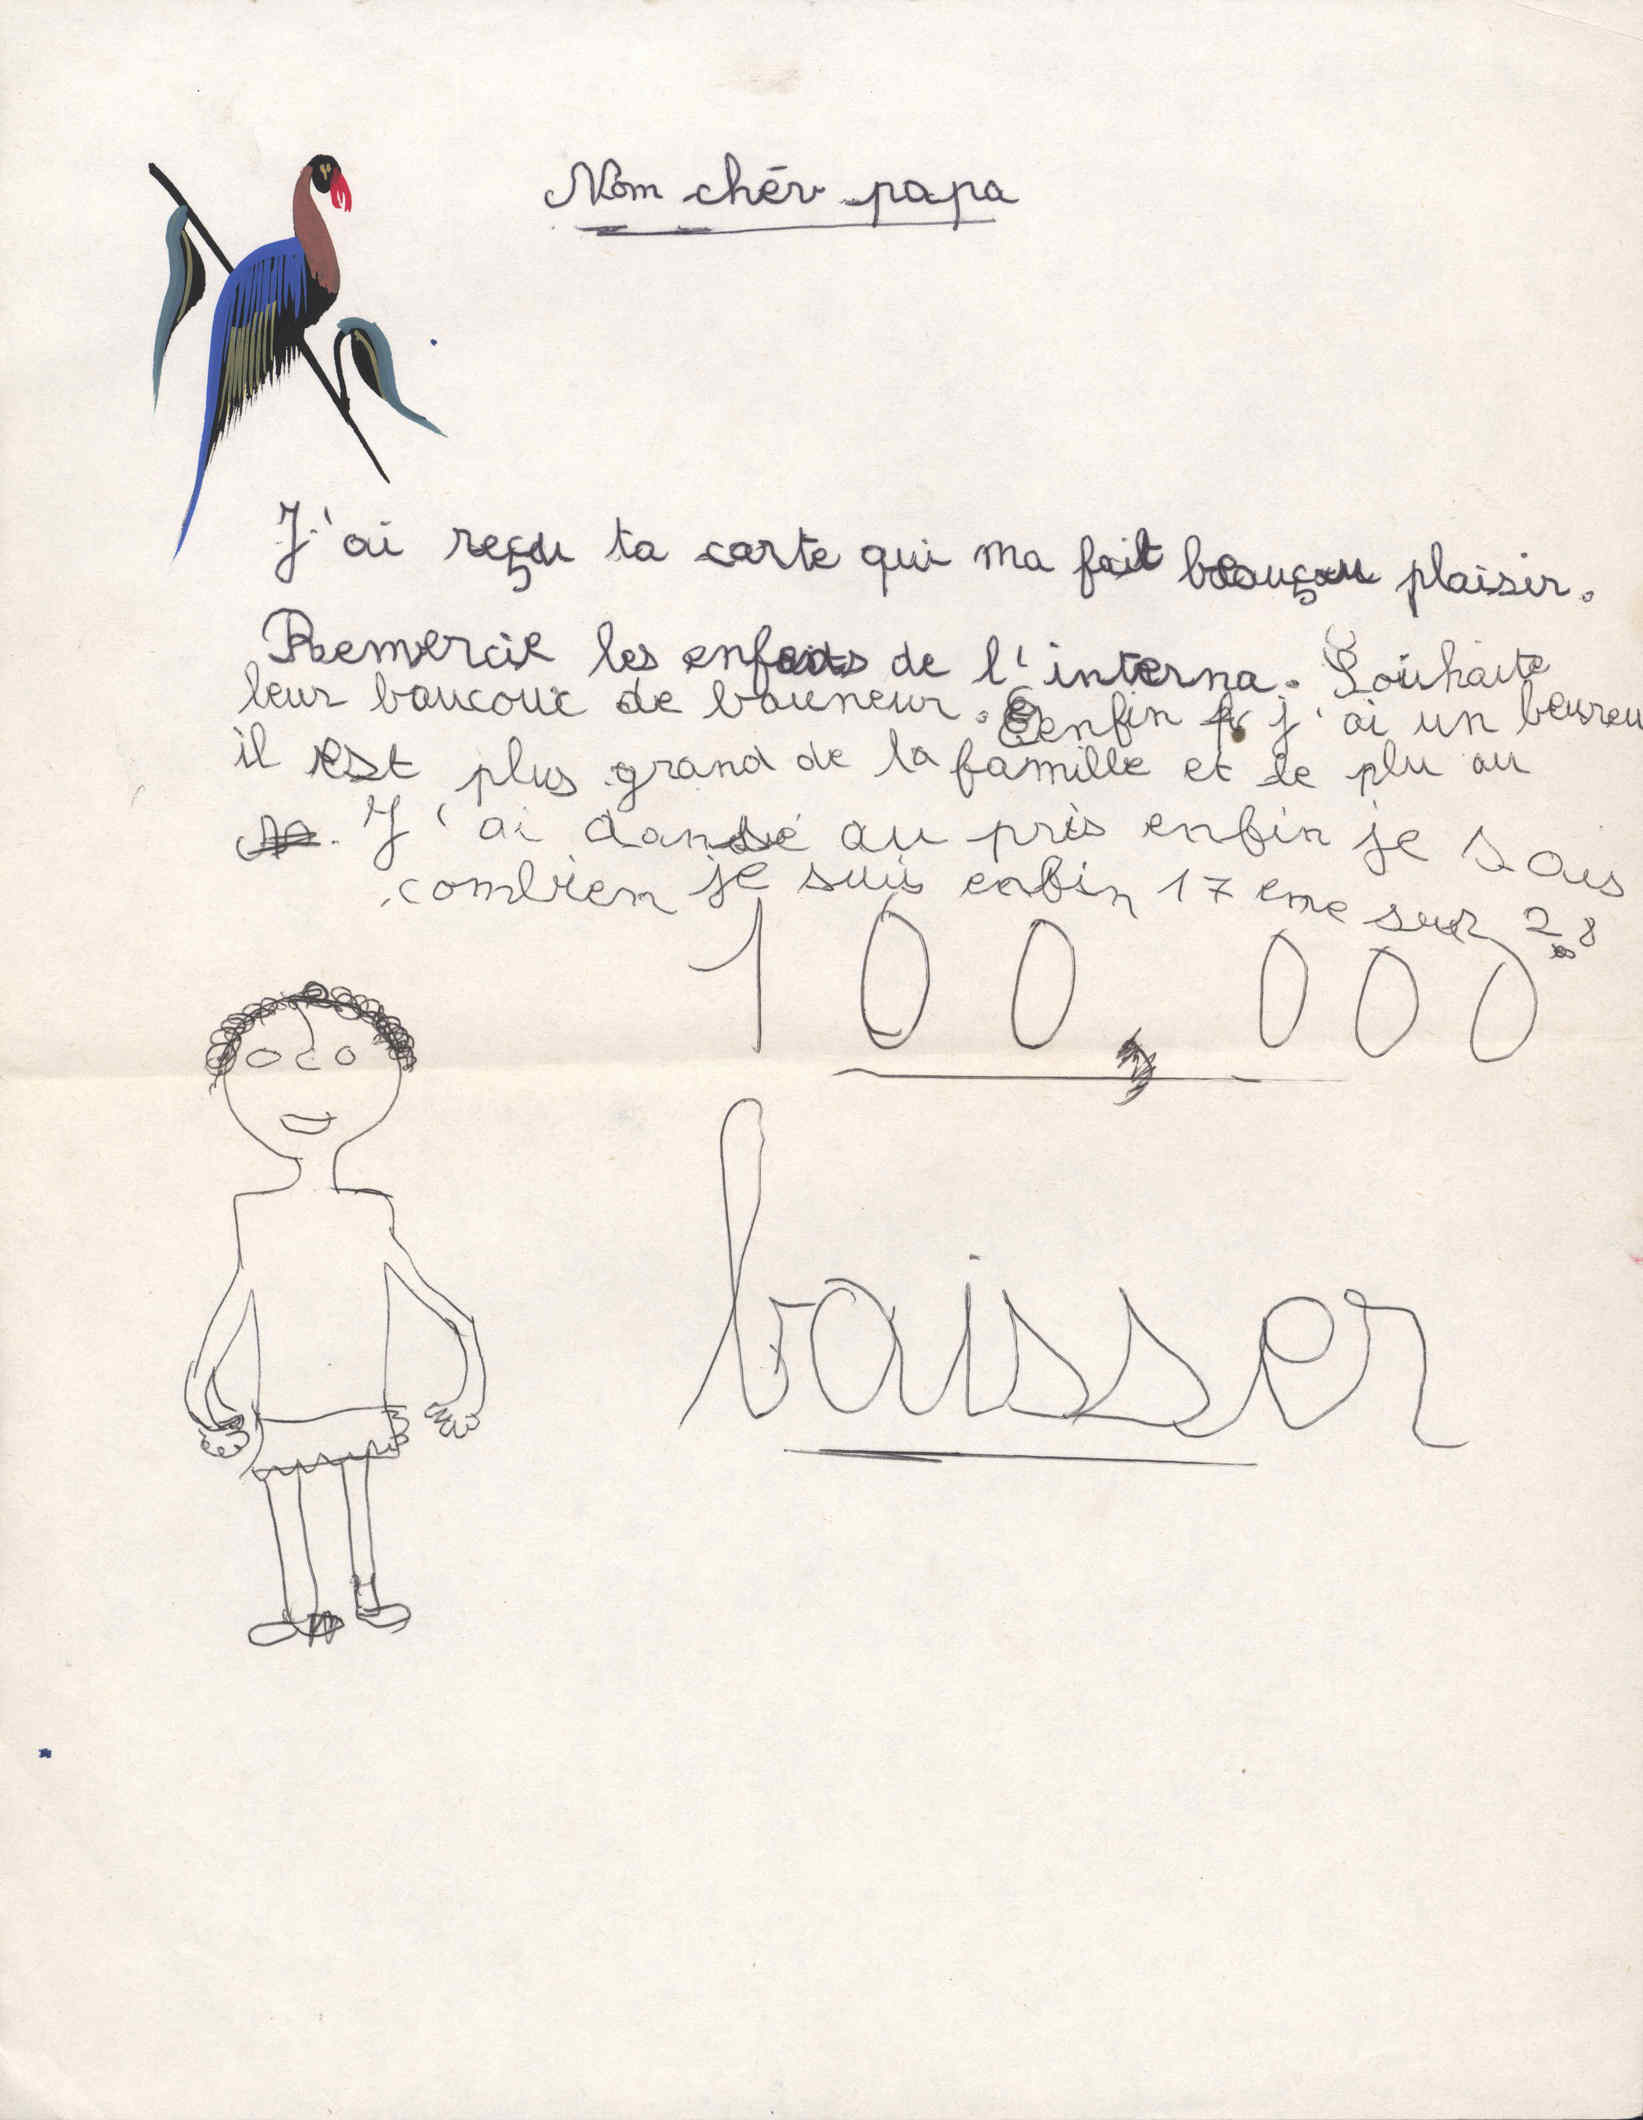 Mom chér papa
J'ai reçdu ta carte qui ma fait beauçou plaisir.
Remercie les enfants de l'interna. Souhaite
leur baucouc de bauneur. enfin j'ai un beureu
il est plus grand de la famille et le plu au
J'ai dansé au près enfin je sais
combien je suis enfin 17 eme sur 28
100.000
baisser